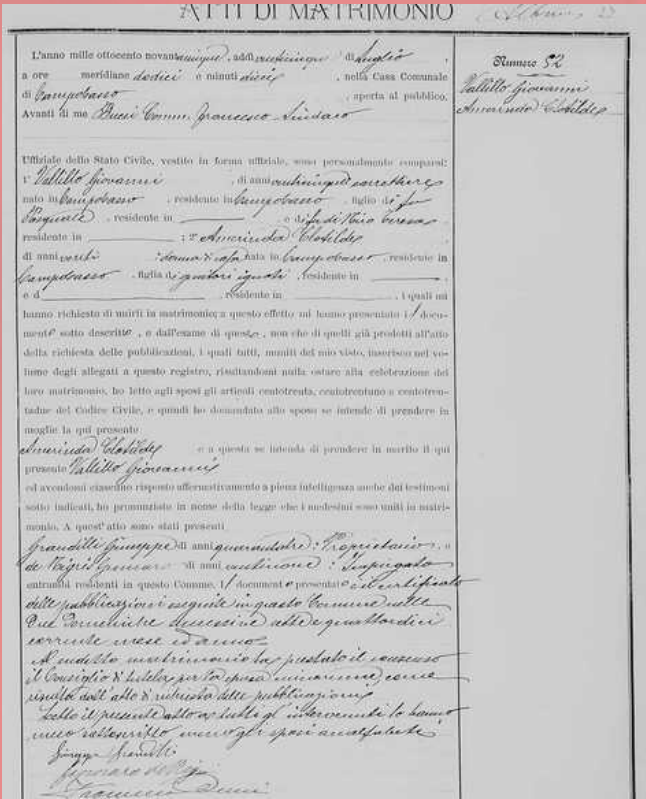 ATTI DI MATRIMONIO
Numero 52
Vallillo Giovanni
Amorinda Clotilde
L'anno mille ottocento novantacinque, addì venticinque di Luglio,
a ore meridiane dodici e minuti dieci, nella Casa Comunale
di Campobasso, aperta al pubblico.
Avanti di me Bucci Comm. Francesco Sindaco
Uffiziale dello Stato Civile, vestito in forma uffiziale, sono personalmente comparsi:
1° Vallillo Giovanni, di anni venticinque carrettiere
nato in Campobasso, residente in Campobasso, figlio di fu
Pasquale, residente in e di fu di Teresa
residente in ; 2° Amorinda Clotilde
di anni venti, donna di casa nata in Campobasso, residente in
Campobasso, figlia di genitori ignoti, residente in
e d , residente in , i quali mi
hanno richiesto di unirli in matrimonio; a questo effetto mi hanno presentato il docu-
mento sotto descritto, e dall'esame di questo, non che di quelli già prodotti all'atto
della richiesta delle pubblicazioni, i quali tutti, muniti del mio visto, inserisco nel vo-
lume degli allegati a questo registro, risultandomi nulla ostare alla celebrazione del
loro matrimonio, ho letto agli sposi gli articoli centotrenta, centotrentuno e centotren-
tadue del Codice Civile, e quindi ho domandato allo sposo se intende di prendere in
moglie la qui presente
Amorinda Clotilde e a questa se intenda di prendere in marito il qui
presente Vallillo Giovanni
ed avendomi ciascuno risposto affermativamente a piena intelligenza anche dei testimoni
sotto indicati, ho pronunziato in nome della legge che i medesimi sono uniti in matri-
monio. A quest'atto sono stati presenti
Grandilli Giuseppe di anni quarantatre, Proprietario, e
de Nigris Gennaro di anni ventinove, Impiegato
entrambi residenti in questo Comune. Il documento presentato è il certificato
delle pubblicazioni eseguite in questo Comune nelle
due Domeniche successive sette e quattordici
corrente mese ed anno.
Al suddetto matrimonio ha prestato il consenso
il Consiglio di tutela per la sposa minorenne, come
risulta dall'atto di richiesta delle pubblicazioni
Letto il presente atto a tutti gl'intervenuti lo hanno
meco sottoscritto, meno gli sposi analfabeti
Giuseppe Grandilli
Gennaro de Nigris
Francesco Bucci